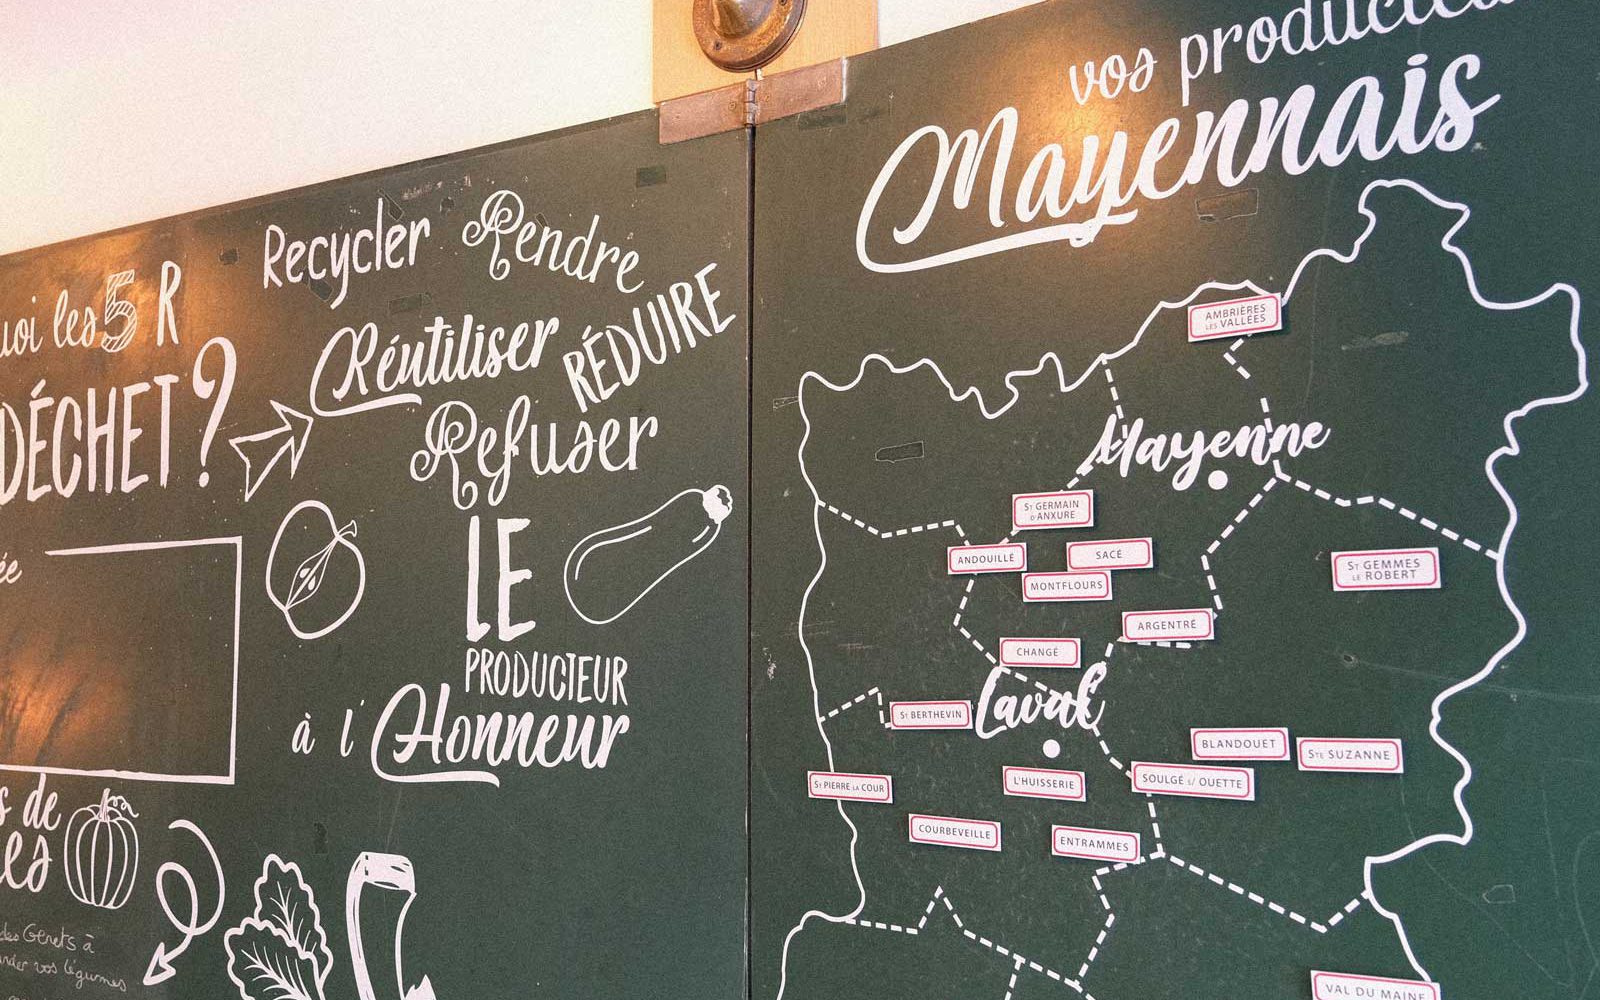 les 5 R
DÉCHET ?
Recycler Rendre
Réutiliser RÉDUIRE
Refuser
LE
PRODUCTEUR
à l'Honneur
de
des Genets à
vos légumes
vos
Mayennais
AMBRIÈRES
LES VALLÉES
Mayenne
ST GERMAIN
D'ANXURE
ANDOUILLÉ
SACÉ
MONTFLOURS
ST GEMMES
LE ROBERT
ARGENTRÉ
CHANGÉ
Laval
ST BERTHEVIN
BLANDOUET
STE SUZANNE
ST PIERRE LA COUR
L'HUISSERIE
SOULGÉ S/ OUETTE
COURBEVEILLE
ENTRAMMES
VAL DU MAINE